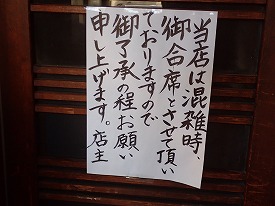 当店は混雑時、
御合席とさせて頂い
ておりますので
御了承の程お願い
申し上げます。店主